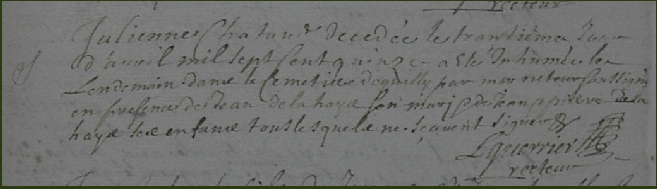 recteur
Julienne Chatau decedée le trantième Jour
d'avril mil sept cent quinze a été Inhumée le
Lendemain dans le Cemetiere par moy recteur
en presence de Jean de la haye son mary & de Jean & pierre de la
haye ses enfans tous lesquels ne sçavent signer &
Lguerrier
recteur